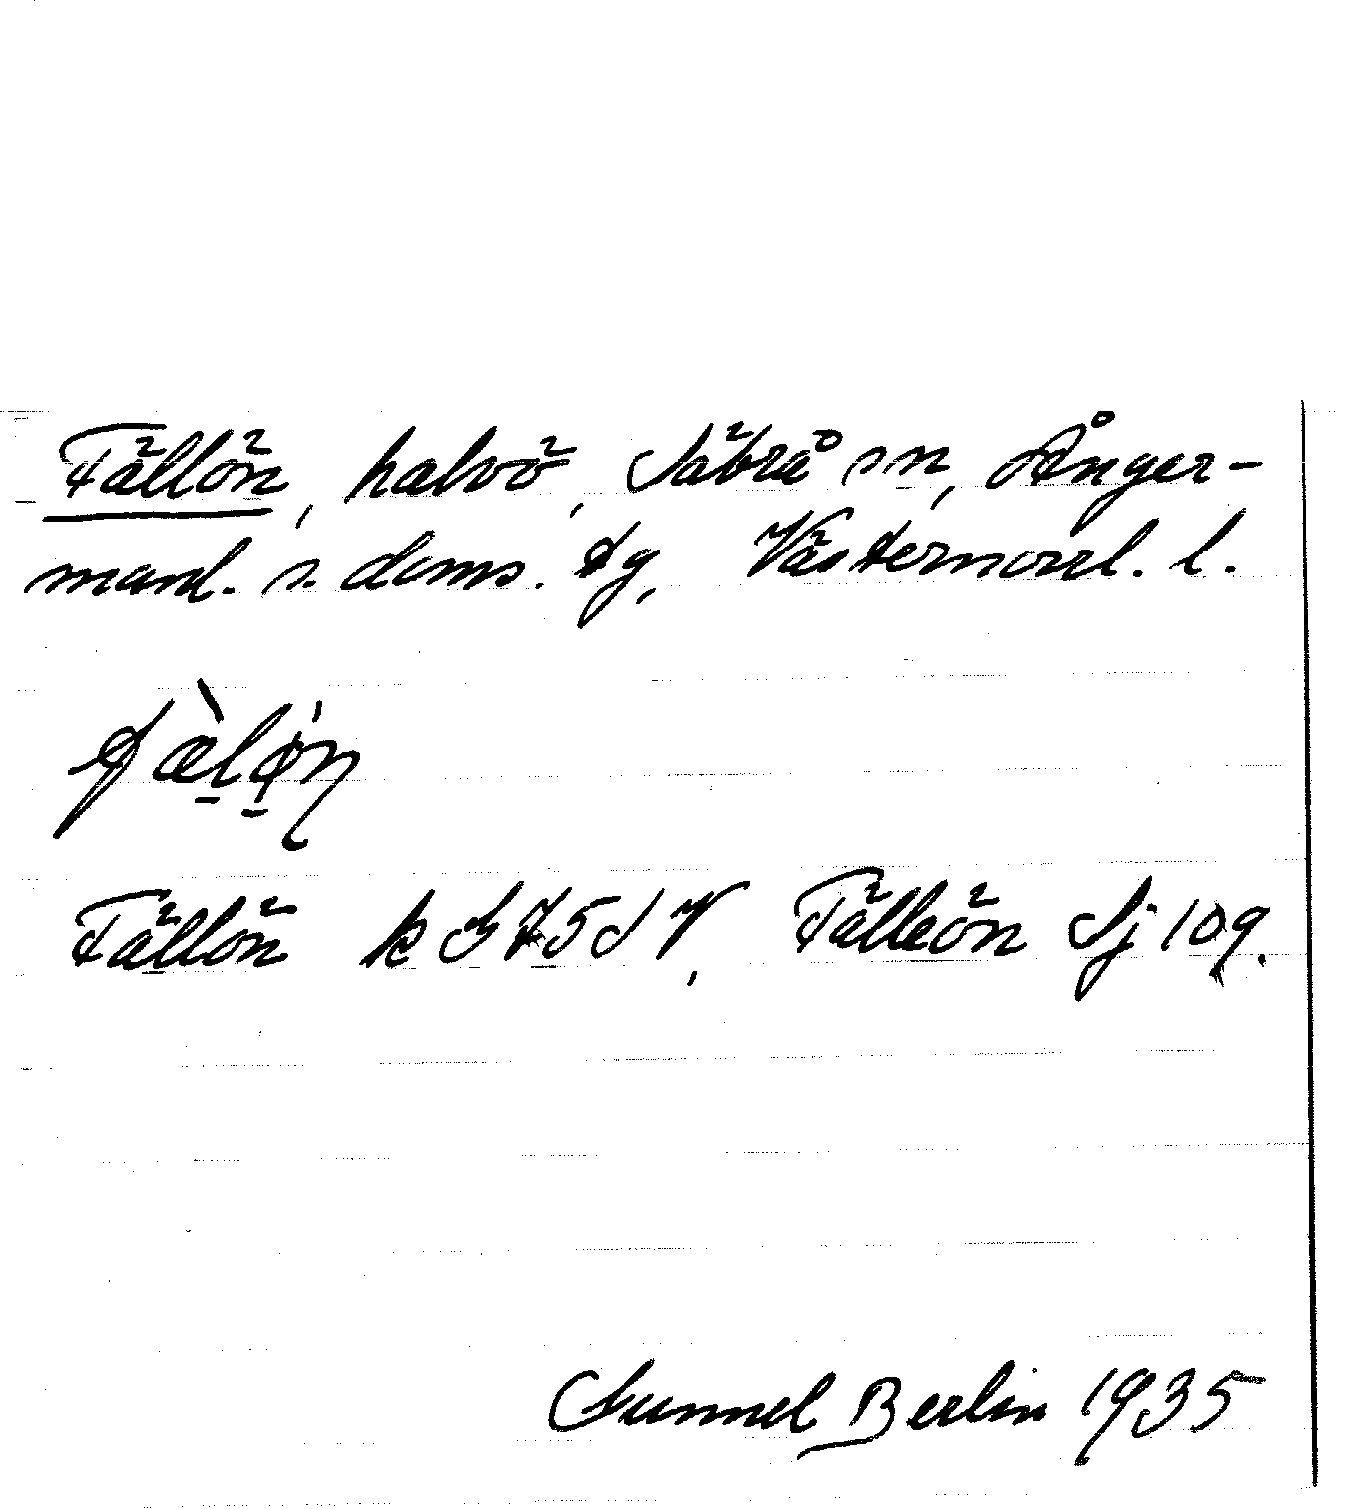 Fällön, halvö, Säbrå sn, Ånger-
manl. s. doms. tg, Västernorrl. l.
fæ̀lø̀n
Fällön k S 75 d V, Fälleön Sj 109.
Gunnel Berlin 1935